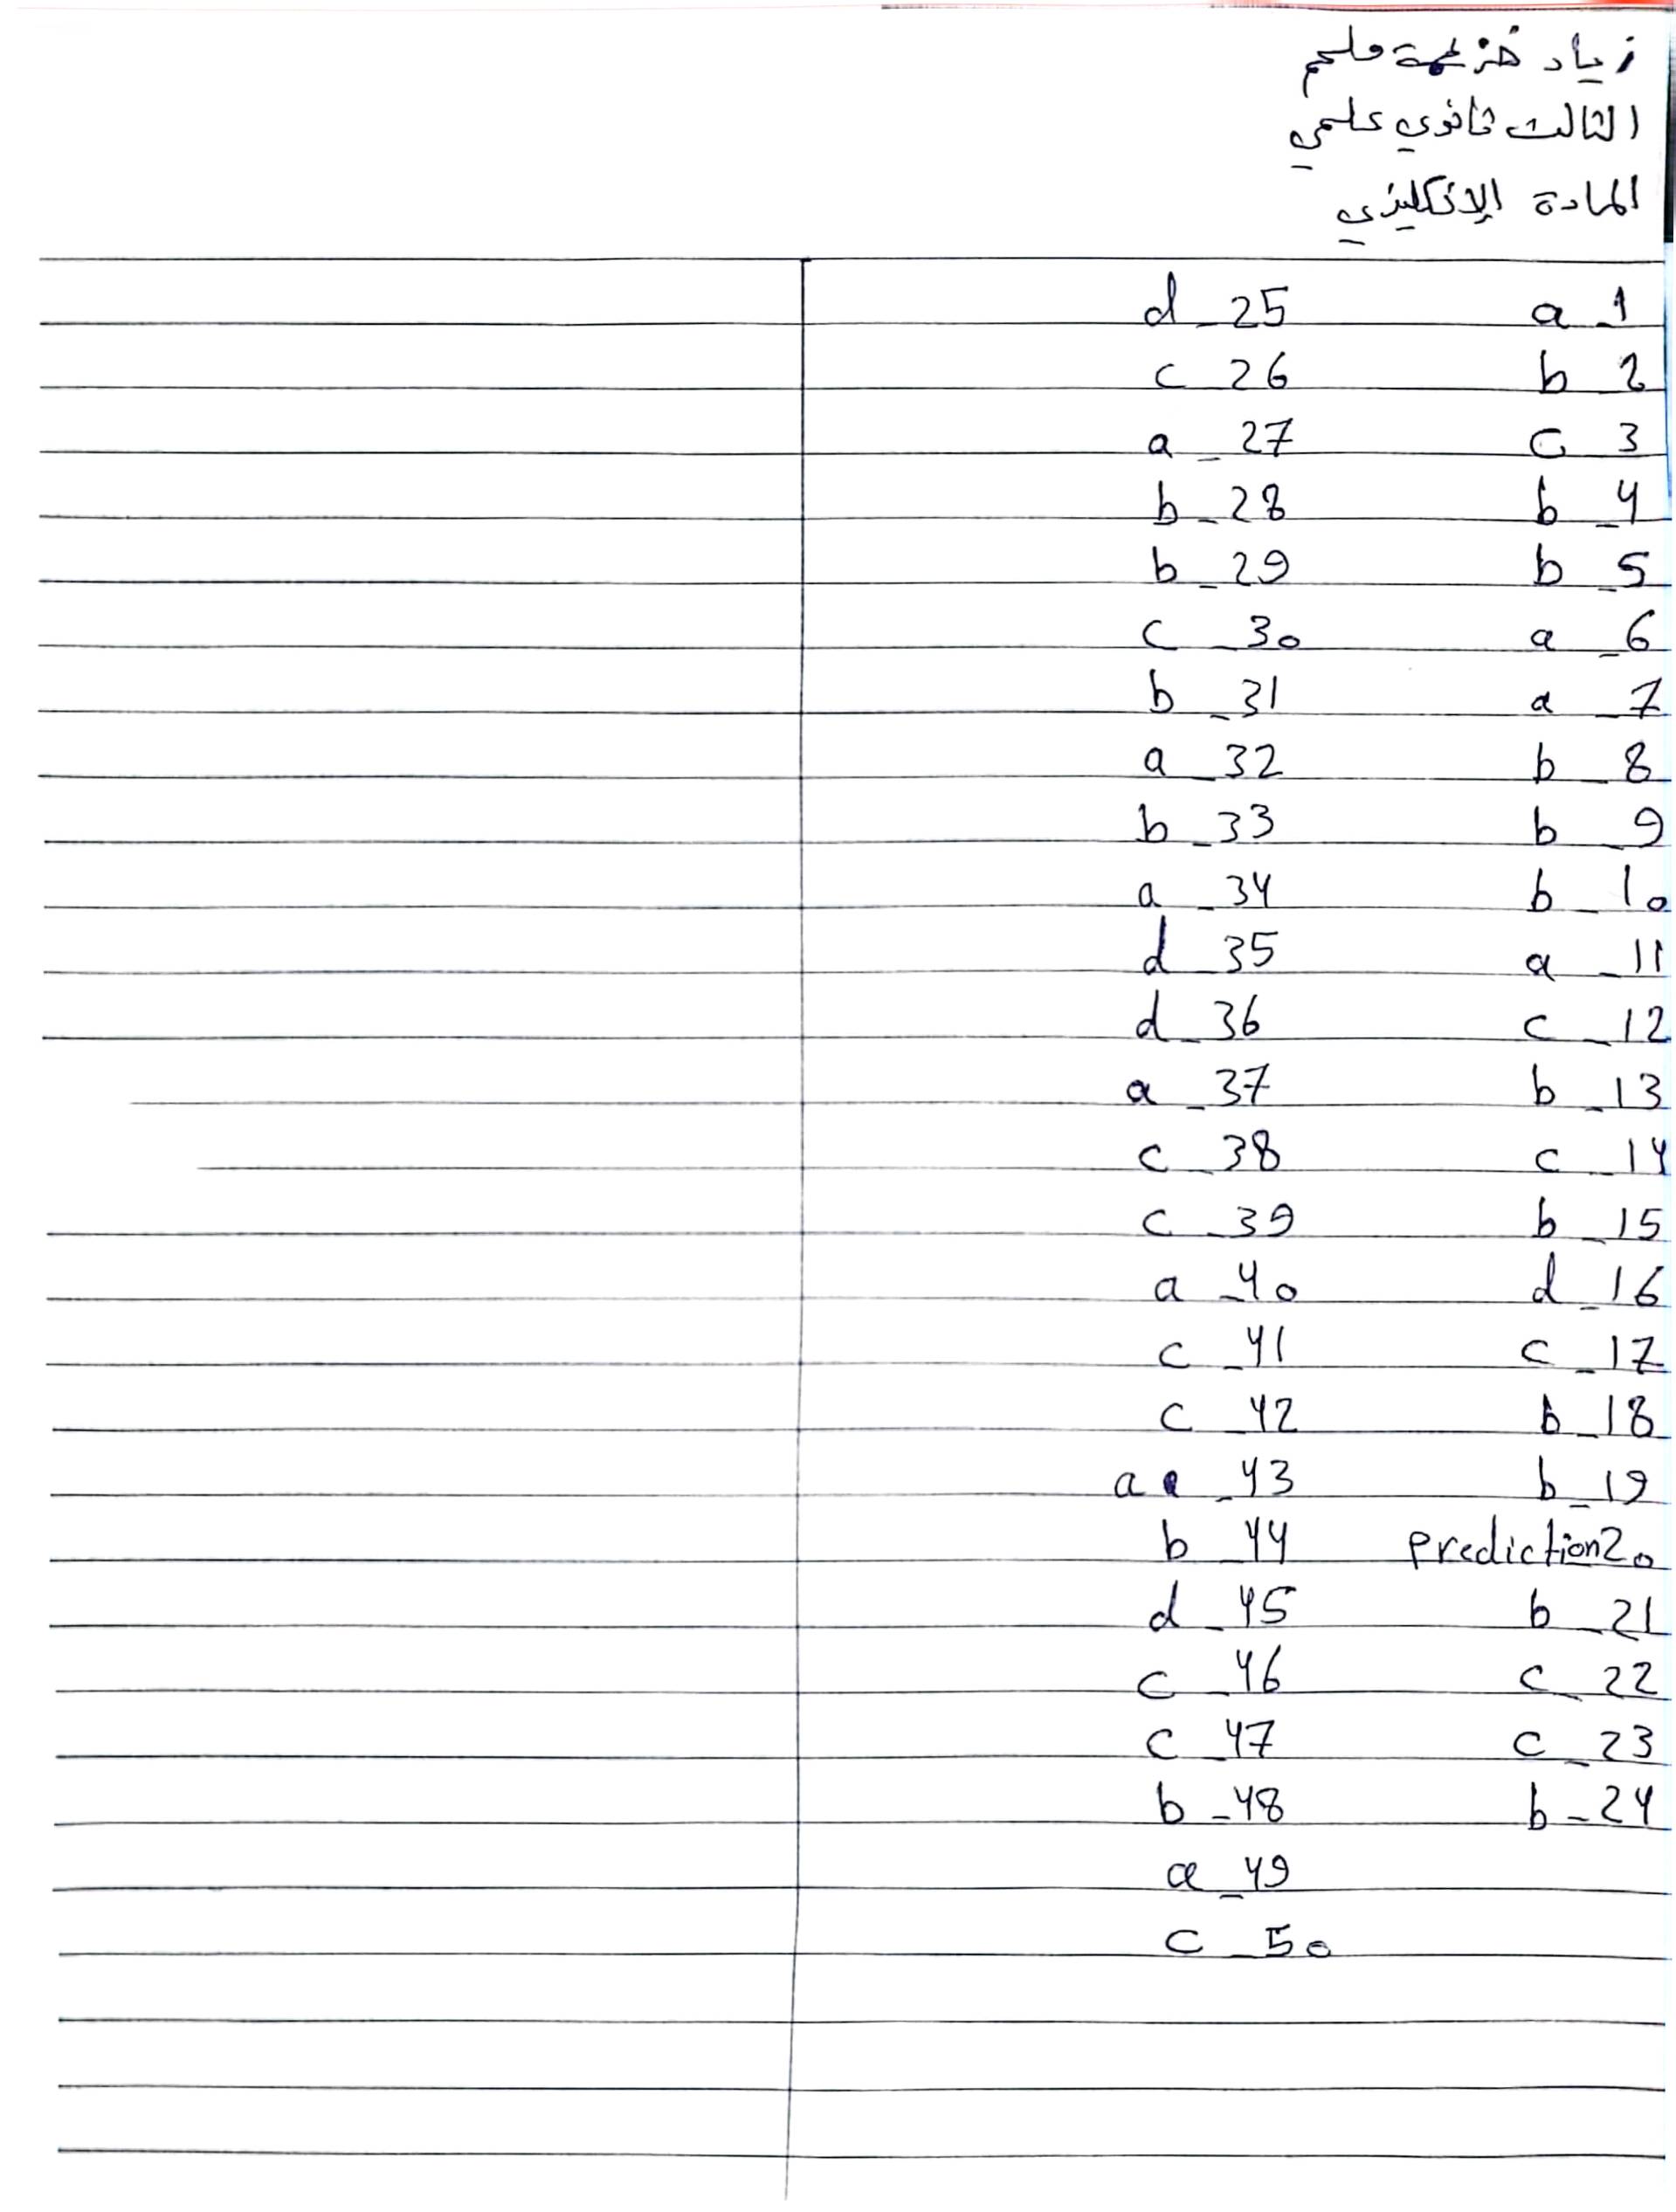 زياد خزيمة ملحم
الثالث ثانوي علمي
المادة الإنكليزي
a _ 1
b _ 2
c _ 3
b _ 4
b _ 5
a _ 6
a _ 7
b _ 8
b _ 9
b _ 10
a _ 11
c _ 12
b _ 13
c _ 14
b _ 15
d _ 16
c _ 17
b _ 18
b _ 19
prediction 20
b _ 21
c _ 22
c _ 23
b _ 24
d _ 25
c _ 26
a _ 27
b _ 28
b _ 29
c _ 30
b _ 31
a _ 32
b _ 33
a _ 34
d _ 35
d _ 36
a _ 37
c _ 38
c _ 39
a _ 40
c _ 41
c _ 42
a _ 43
b _ 44
d _ 45
c _ 46
c _ 47
b _ 48
a _ 49
c _ 50